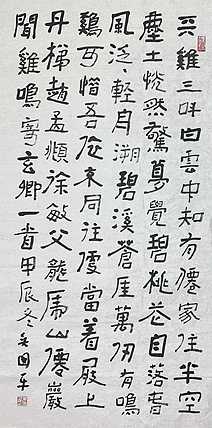 天雞三叫白雲中知有僊家住半空
塵土恍然驚夢覺碧桃花自落春
風泛〻輕舟溯碧溪蒼崖萬仞有鳴
雞可惜吾來同往處當着屐上
丹梯趙孟頫徐敏父龍虎山僊巖
聞雞鳴寄玄卿一首甲辰冬吳國